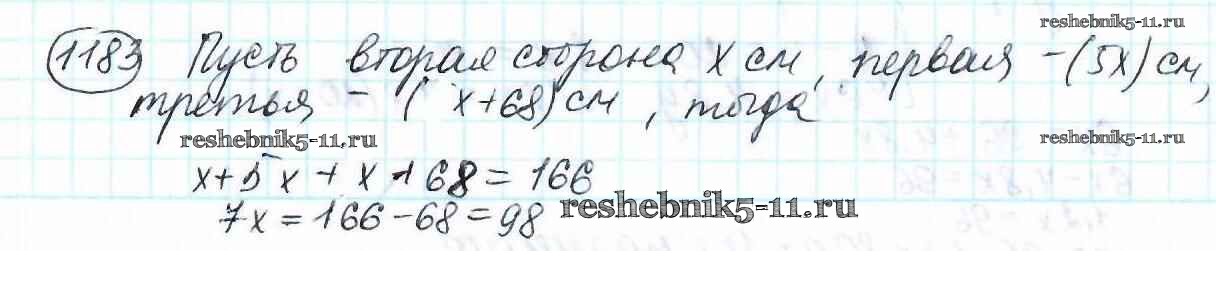 reshebnik5-11.ru
1183 Пусть вторая сторона x см, первая - (5x) см,
третья - ( x+68) см, тогда
reshebnik5-11.ru reshebnik5-11.ru
x + 5x + x + 68 = 166
7x = 166 - 68 = 98 reshebnik5-11.ru